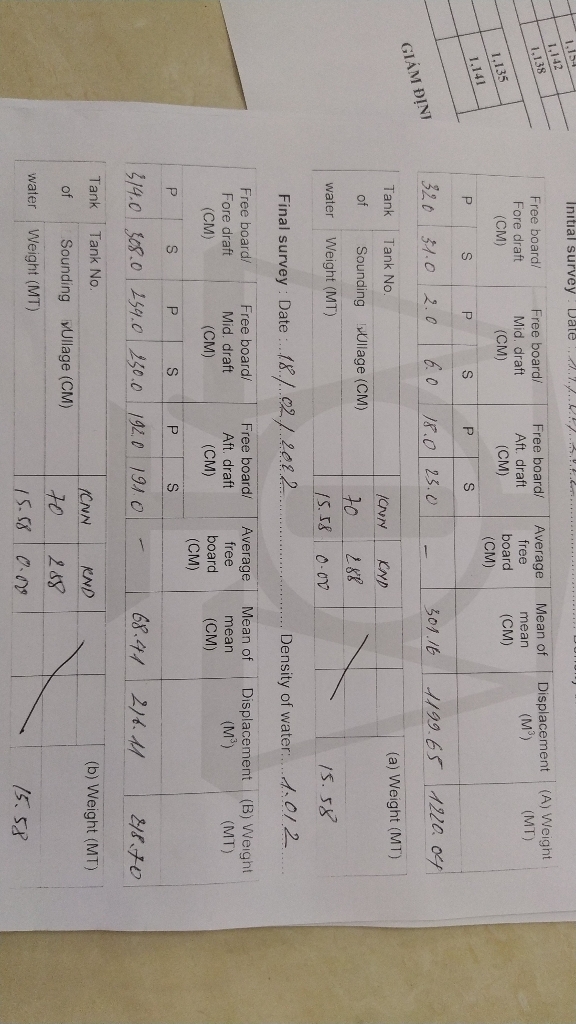 1.154
1.142
1.138
1.135
1.141
GIÁM ĐỊNH
Initial survey : Date
Free board/ Fore draft (CM) Free board/ Mid. draft (CM) Free board/ Aft. draft (CM) Average free board (CM) Mean of mean (CM) Displacement (M³) (A) Weight (MT)
P S P S P S
32.0 31.0 2.0 6.0 18.0 23.0 - 301.16 1199.65 1220.04
Tank Tank No. KNN KND (a) Weight (MT)
of Sounding √Ullage (CM) 70 288
water Weight (MT) 15.58 0.00 15.58
Final survey : Date : 18/02/2022 Density of water: 1.012
Free board/ Fore draft (CM) Free board/ Mid. draft (CM) Free board/ Aft. draft (CM) Average free board (CM) Mean of mean (CM) Displacement (M³) (B) Weight (MT)
P S P S P S
314.0 308.0 250.0 192.0 191.0 - 68.41 216.11 218.70
Tank Tank No. KNN KND (b) Weight (MT)
of Sounding √Ullage (CM) 70 288
water Weight (MT) 15.58 0.00 15.58